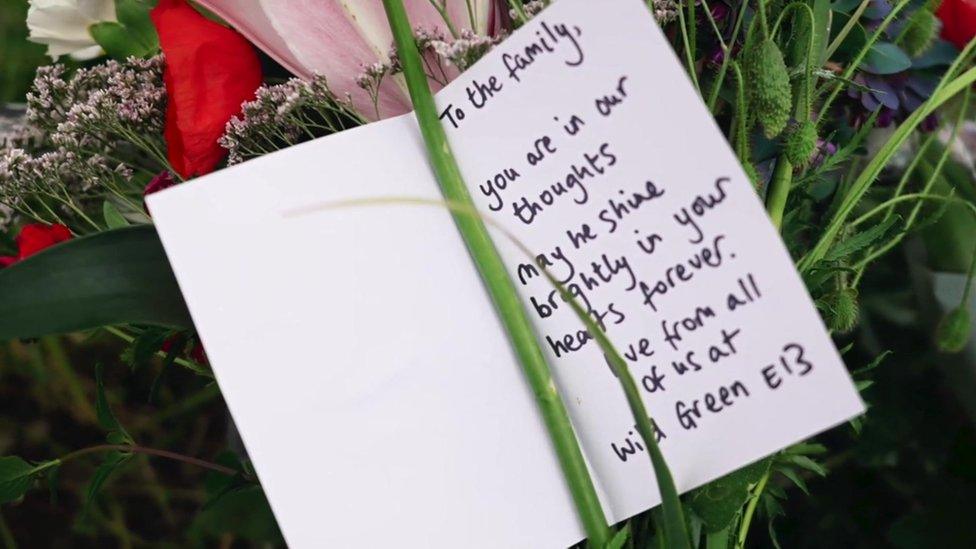 To the family,
you are in our
thoughts
may he shine
brightly in your
hearts forever.
ve from all
of us at
Wild Green E13